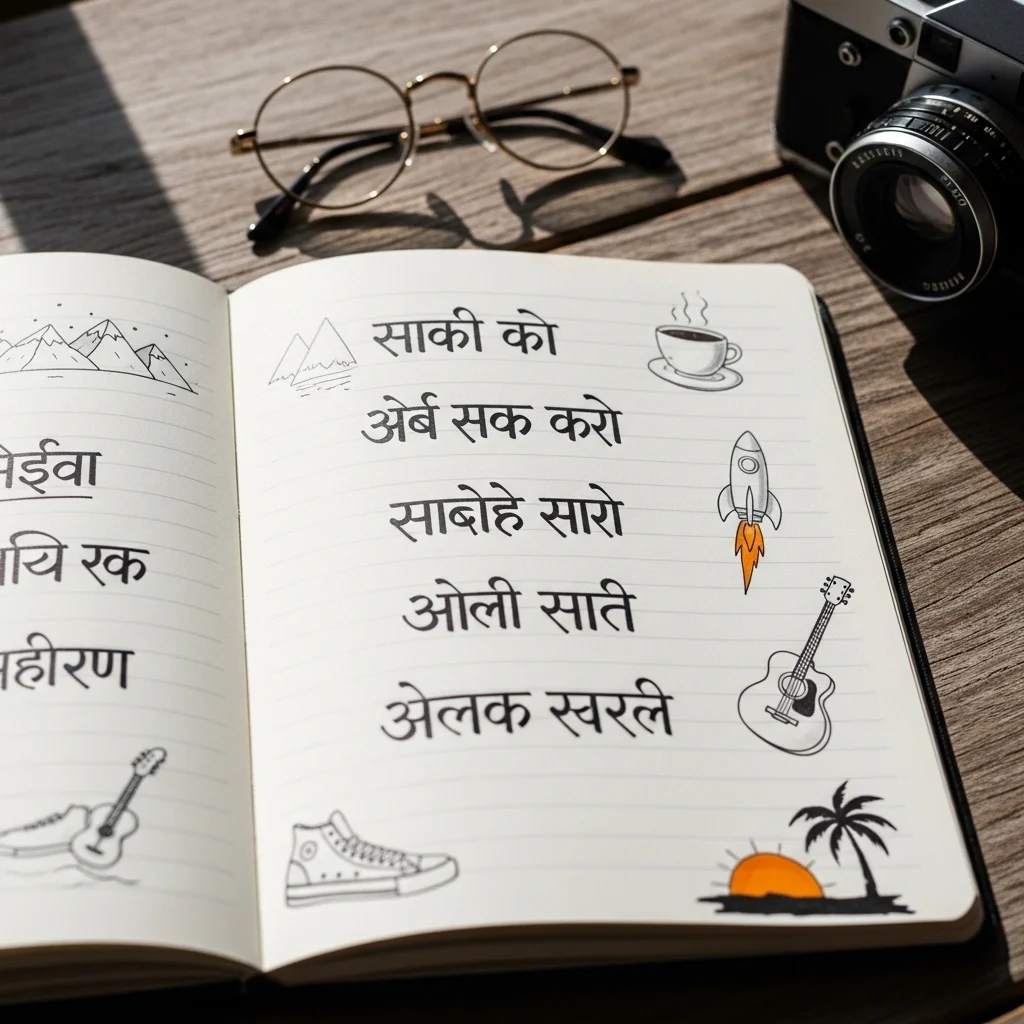 रक
साकी को
अेर्ब सक करो
साबोहे सारो
ओली साती
अेलक स्वरली